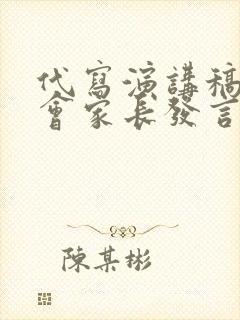 代寫演講稿
會家長發言
陳某彬